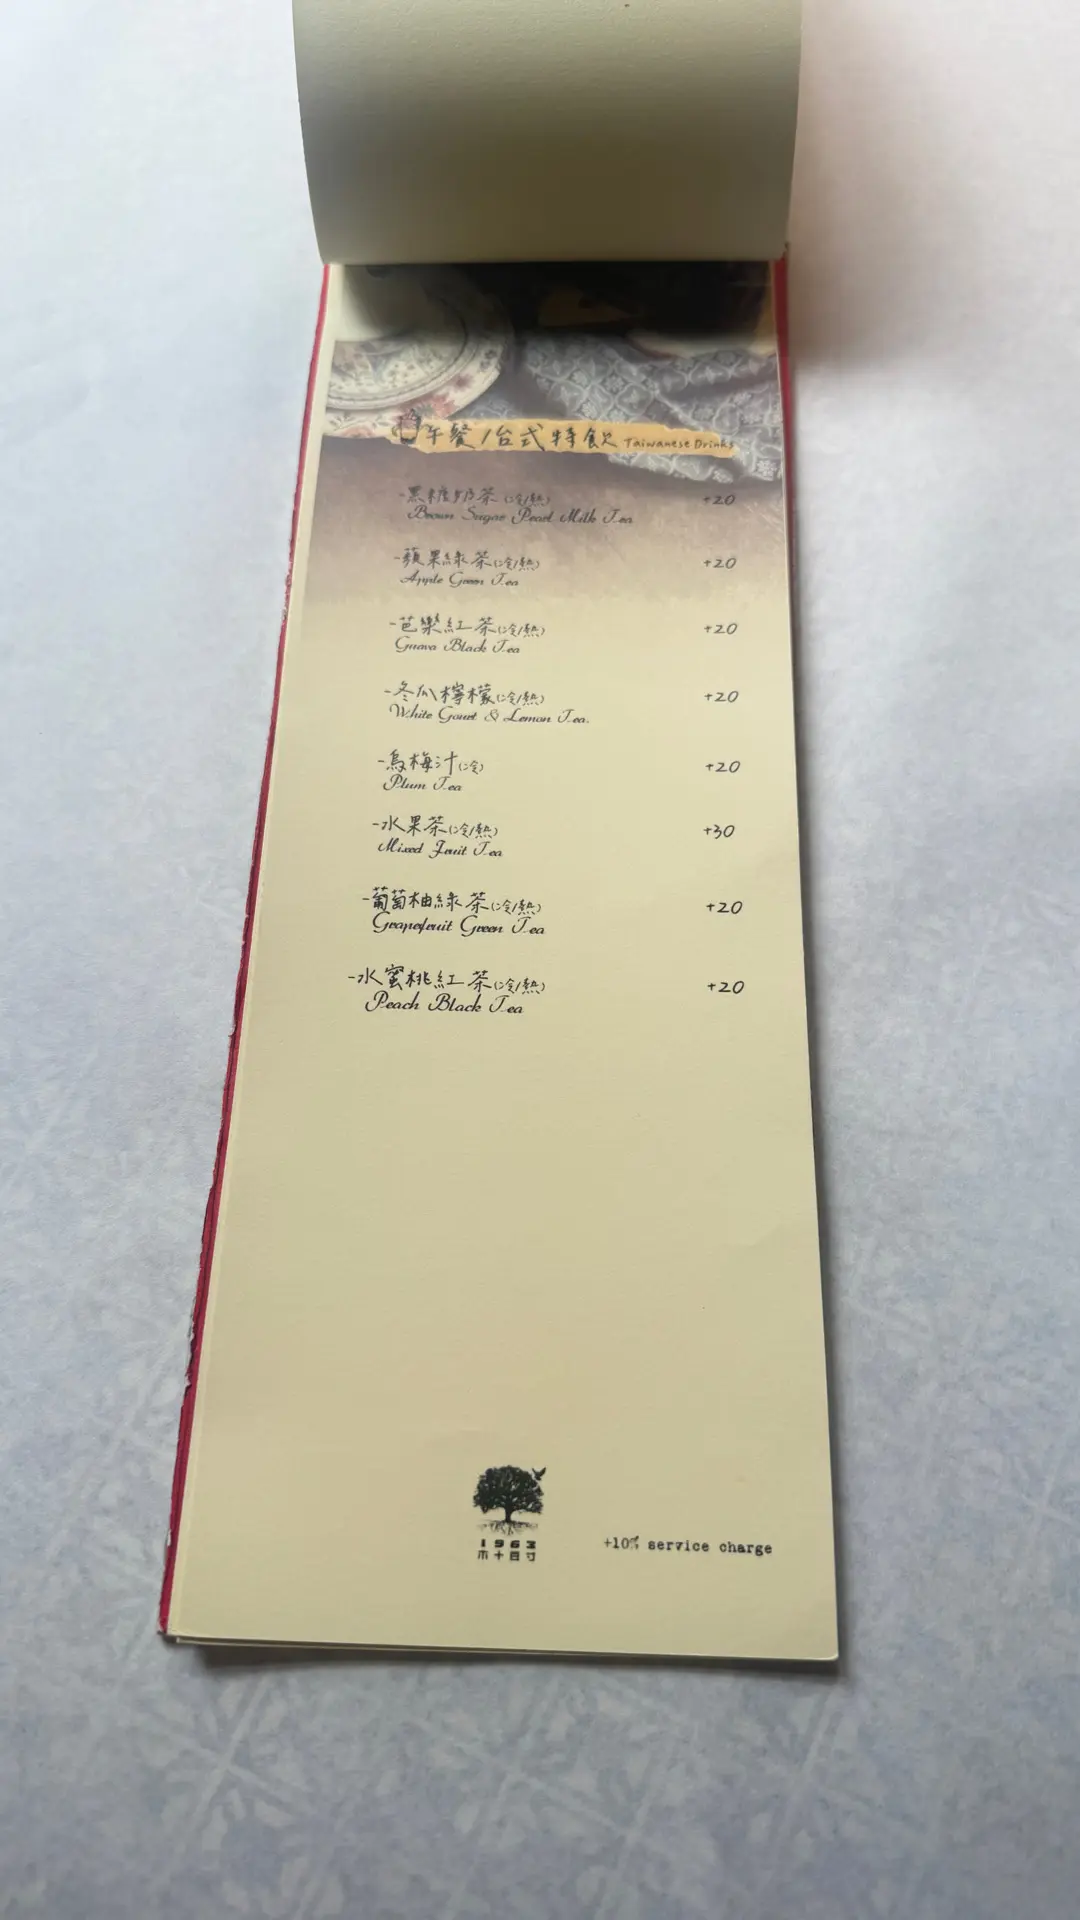 午餐/台式特飲 Taiwanese Drinks
-黑糖奶茶(冷/熱) +20
Brown Sugar Pearl Milk Tea
-蘋果綠茶(冷/熱) +20
Apple Green Tea
-芭樂紅茶(冷/熱) +20
Guava Black Tea
-冬瓜檸檬(冷/熱) +20
White Gourd & Lemon Tea.
-烏梅汁(冷) +20
Plum Tea
-水果茶(冷/熱) +30
Mixed Fruit Tea
-葡萄柚綠茶(冷/熱) +20
Grapefruit Green Tea
-水蜜桃紅茶(冷/熱) +20
Peach Black Tea
1963
+10% service charge